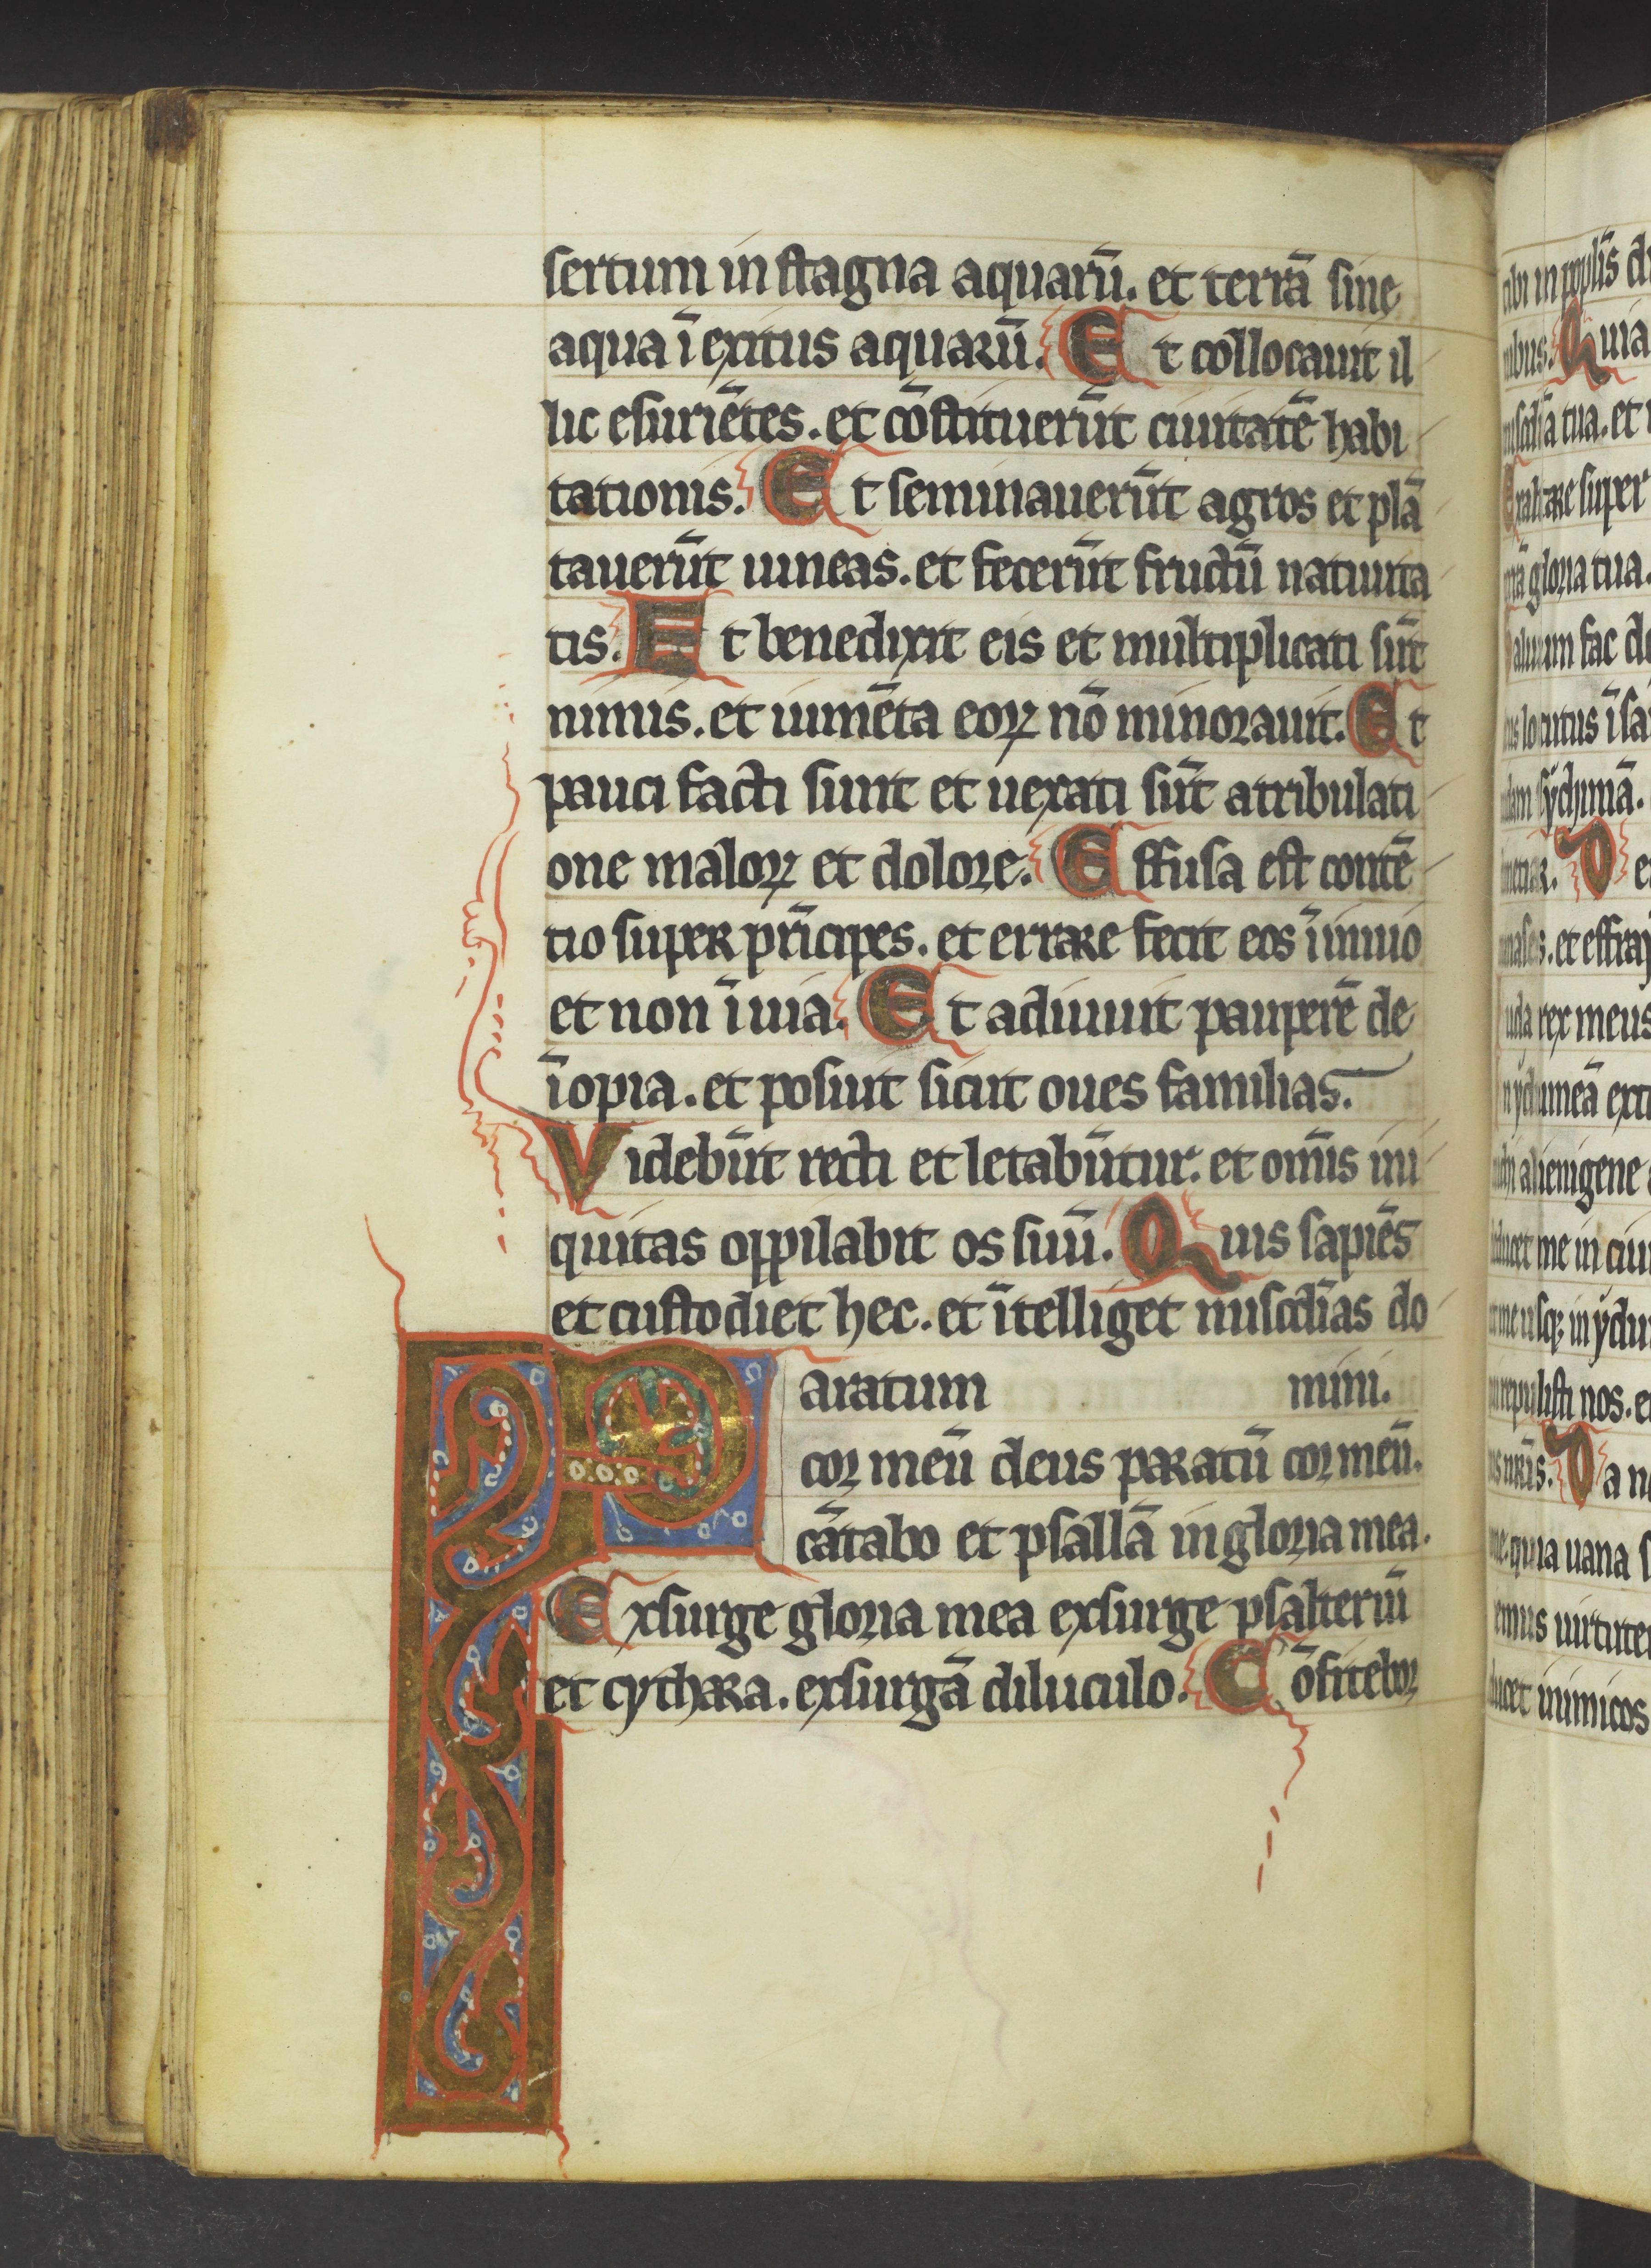 sertum in stagna aquarū. et terrā sine
aqua ī exitus aquarū. Et collocauit il
lic esuriētes. et cōstituerūt ciuitatē habi
tationis. Et seminauerūt agros et plā
tauerūt uineas. et fecerūt fructū natiuita
tis. Et benedixit eis et multiplicati sūt
nimis. et iumēta eoꝝ nō minorauit. Et
pauci facti sunt et uexati sūt a tribulati
one maloꝝ et dolore. Effusa est contē
tio super prīcipes. et errare fecit eos ī inuio
et non ī uia. Et adiuuit pauperē de
īopia. et posuit sicut oues familias.
Videbūt recti et letabūtur. et om̄is ini
quitas oppilabit os suū. Quis sapiēs
et custodiet hec. et ītelliget misc̄dias do
Paratum mini.
cor meū deus paratū cor meū.
cātabo et psallā in gloria mea.
Exsurge gloria mea exsurge psalteriū
et cythara. exsurgā diluculo. Cōfitebor
tibi in ppl̄is
Quia
tua. et
super
gloria tua.
fac
locutus ī
sychimā.
De
. et
rex meus
alienigene
me in
usqꝫ in
nos.
Da
quia uana
inimicos